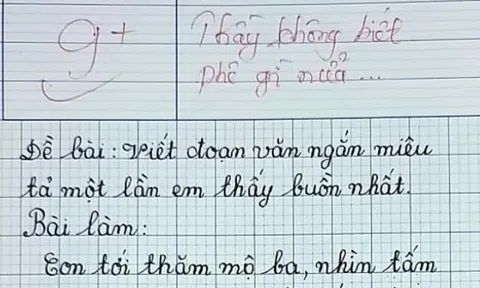 9+
Thầy không biết
phê gì nữa...
Đề bài: Viết đoạn văn ngắn miêu
tả một lần em thấy buồn nhất.
Bài làm:
Con tới thăm mộ ba, nhìn tấm